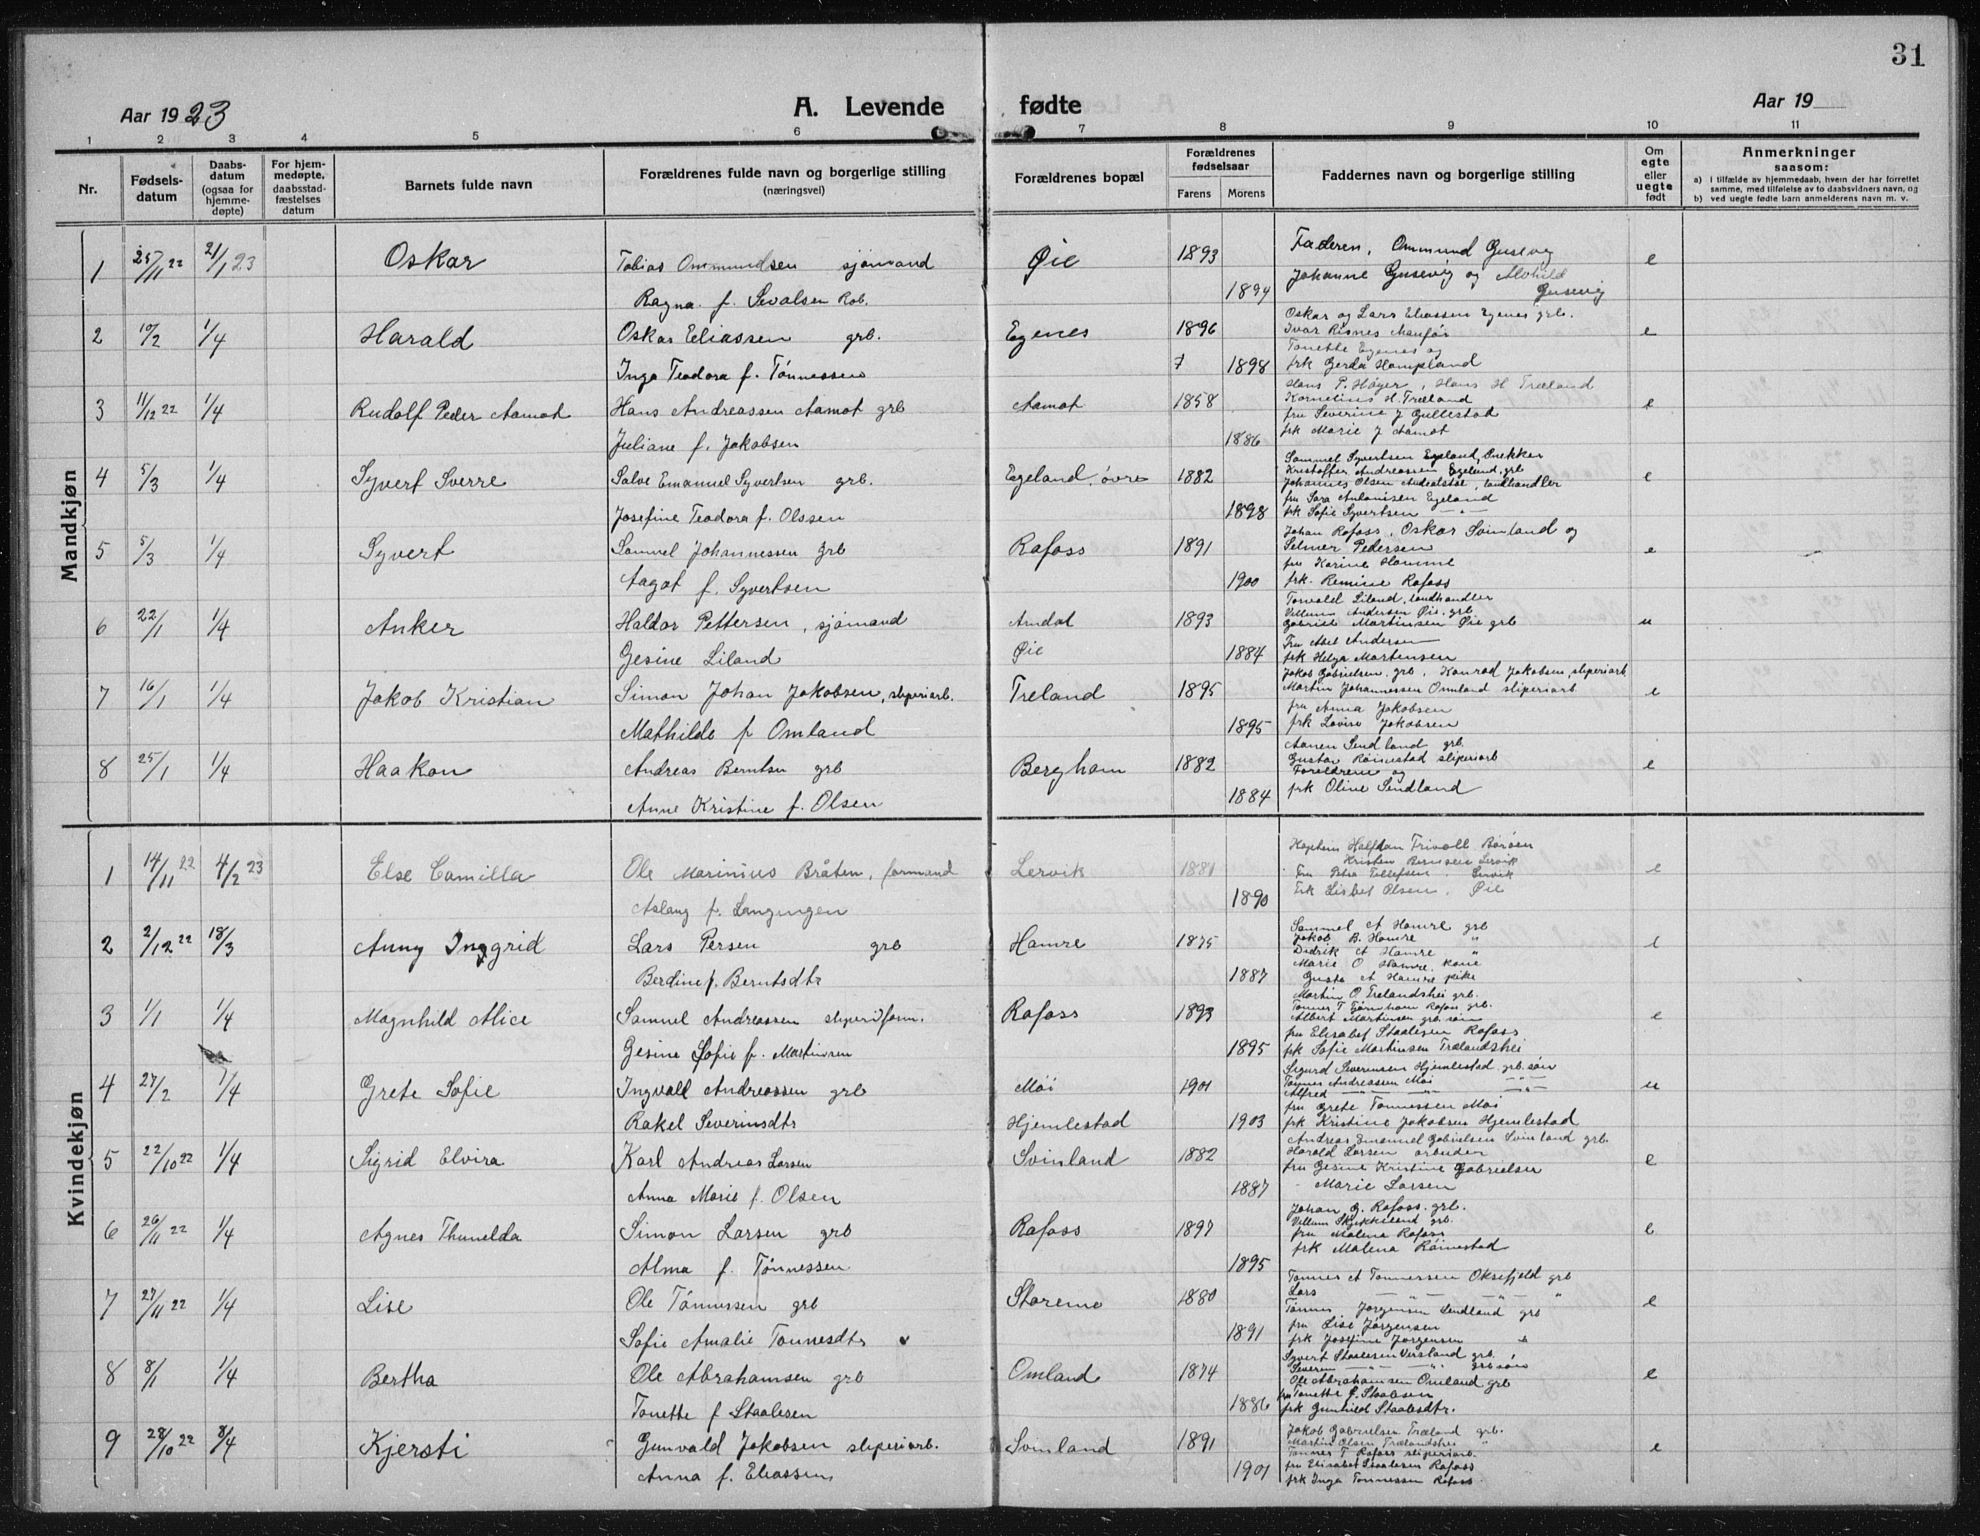 31
Aar 1923
A. Levende fødte
Aar 19
1 2 3 4 5 6 7 8 9 10 11
Nr.
Fødsels-
datum
Daabs-
datum
(ogsaa for
hjemme-
døpte)
For hjem-
medøpte,
daabsstad-
fæstelses
datum
Barnets fulde navn
Forældrenes fulde navn og borgerlige stilling
(næringsvei)
Forældrenes bopæl
Forældrenes
fødselsaar
Farens Morens
Faddernes navn og borgerlige stilling
Om
egte
eller
uegte
født
Anmerkninger
saasom:
a) i tilfælde av hjemmedaab, hvem der har forrettet
samme, med tilføielse av to daabsvidners navn, og
b) ved uegte fødte barn anmelderens navn m. v.
Mandkjøn
1 25/11 22 21/1 23 Oskar Tobias Ommundsen sjömand Øie 1893 e
Ragna f. Sevalsen Rob. 1894
Faderen, Ommund Gusevig
Johanne Gusevig og Alvhild
Gusevig
2 10/2 1/4 Harald Oskar Eliassen grb. Egenes 1896 e
Inga Teodora f. Tönnessen 7 1898
Oskar og Lars Eliassen Egenes grb.
Ivar Risnes
Tonette Egenes og
frk Gerda Hompland
3 11/12 22 1/4 Rudolf Peder Aamot Hans Andreassen Aamot grb Aamot 1858 e
Juliane f. Jakobsen 1886
Hans P. Höyer, Hans H Træland
Kornelius H. Træland
fru Severine J Gullestad
frk Marie J Aamot
4 5/3 1/4 Syvert Sverre Salve Emanuel Syvertsen grb. Egeland, övre 1882 e
Josefine Teodora f. Olssen 1898
Sammel Syvertsen Egeland, Snekker
Kristoffer Andreassen Egeland, grb
Johannes Olsen landhandler
fru Sara Antonisen Egeland
frk Sofie Syvertsen — " —
5 5/3 1/4 Syvert Samuel Johannessen grb Rafoss 1891 e
Aagot f. Syvertsen 1900
Johan Rafoss, Oskar Svinland og
Selmer Pedersen
fru Karine Homme
frk. Remine Rafoss
6 22/1 1/4 Anker Haldor Pettersen, sjömand Arndal 1893 u
Gesine Liland Øie 1884
Torvald Liland, landhandler
Vellum Andersen Øie. grb
Gabriel Martinsen Øie grb
Fru Abel Andersen
frk Helga Martensen
7 16/1 1/4 Jakob Kristian Simon Johan Jakobsen, sliperiarb. Treland 1895 e
Mathilde f Omland 1895
Jakob Gabrielsen, grb, Konrad Jakobsen, sliperiarb
Martin Johannessen Omland sliperiarb
fru Anna Jakobsen
frk Lovise Jakobsen
8 25/1 1/4 Haakon Andreas Berntsen grb Bergham 1882 e
Anne Kristine f. Olsen 1884
Aanen Sindland grb.
Gustav Röinestad sliperiarb
Foreldrene og
frk Oline Sindland
Kvindekjøn
1 14/11 22 4/2 23 Else Camilla Ole Marinius Bråten, formand Lervik 1881 e
Aslaug f. Langingen 1890
Halfdan Frivoll
Kristen Lervik
Fru Petra Tollefsen, Lervik
Frk Lisbet Olsen, Øie
2 2/12 22 18/3 Anny Inggrid Lars Persen grb Hamre 1875 e
Berdine f. Berntsdtr 1887
Sammel A Hamre grb
Jakob B. Hamre "
Didrik A Hamre "
Marie O Hamre kone
Gusta A Hamre pike
3 1/1 1/4 Magnhild Alice Samuel Andreassen sliperiform. Rafoss 1893 e
Gesine Sofie f. Martinsen 1895
Martin O Trelandshei grb.
Tönnes T Rafoss grb.
Albert Martinsen grb. sön
fru Elisabet Staalesen Rafoss
frk Sofie Martinsen Trælandshei
4 27/2 1/4 Grete Sofie Ingvald Andreassen grb Moi 1901 u
Rakel Severinsdtr Hjemlestad 1903
Sigurd Severinsen Hjemlestad grb. sön
Tönnes Andreassen Moi — " —
Alfred — " — — " —
fru Grete Tönnessen Moi
frk Kristine Jakobsen Hjemlestad
5 22/10 22 1/4 Sigrid Elvira Karl Andreas Larsen Svinland 1882 e
Anna Marie f. Olsen 1887
Andreas Emanuel Gabrielsen Svinland grb.
Harald Larsen arbeider
fru Gesine Kristine Gabrielsen
" Marie Larsen
6 26/11 22 1/4 Agnes Thunelda Simon Larsen grb Rafoss 1897 e
Alma f. Tönnessen 1895
Johan G. Rafoss. grb.
Vellum grb.
fru Malena Rafoss
frk Malena Röinestad
7 27/11 22 1/4 Lise Ole Tönnessen grb Storemo 1880 e
Sofie Amalie Tonnesdtr 1891
Tonnes A Tonnessen Oksefjeld grb
Lars — " — — " — "
Tönnes Jörgensen Sindland grb
fru Lise Jörgensen
frk Josefine Jörgensen
8 8/1 1/4 Bertha Ole Abrahamsen grb Omland 1874 e
Tonette f Staalesen 1886
Syvert Staalesen Versland grb.
Severin — " — — " — grb sön
Ole Abrahamsen Omland grb
fru Tonette f. Staalesen
frk Gunhild Staalesdtr.
9 28/10 22 8/4 Kjersti Gunvald Jakobsen sliperiarb. Svinland 1891 e
Anna f. Eliassen 1901
Jakob Gabrielsen Træland grb.
Martin Olsen Trælandshei "
Tönnes T Rafoss sliperiarb.
fru Elisabet Staalesen Rafoss
frk Inga Tönnessen Rafoss